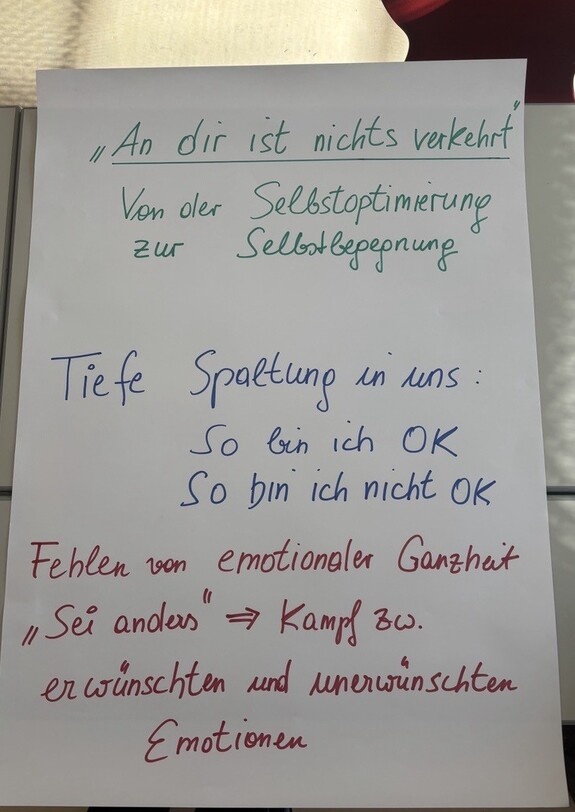 „An dir ist nichts verkehrt"
Von der Selbstoptimierung
zur Selbstbegegnung
Tiefe Spaltung in uns:
So bin ich OK
So bin ich nicht OK
Fehlen von emotionaler Ganzheit
„Sei anders" ⇒ Kampf zw.
erwünschten und unerwünschten
Emotionen